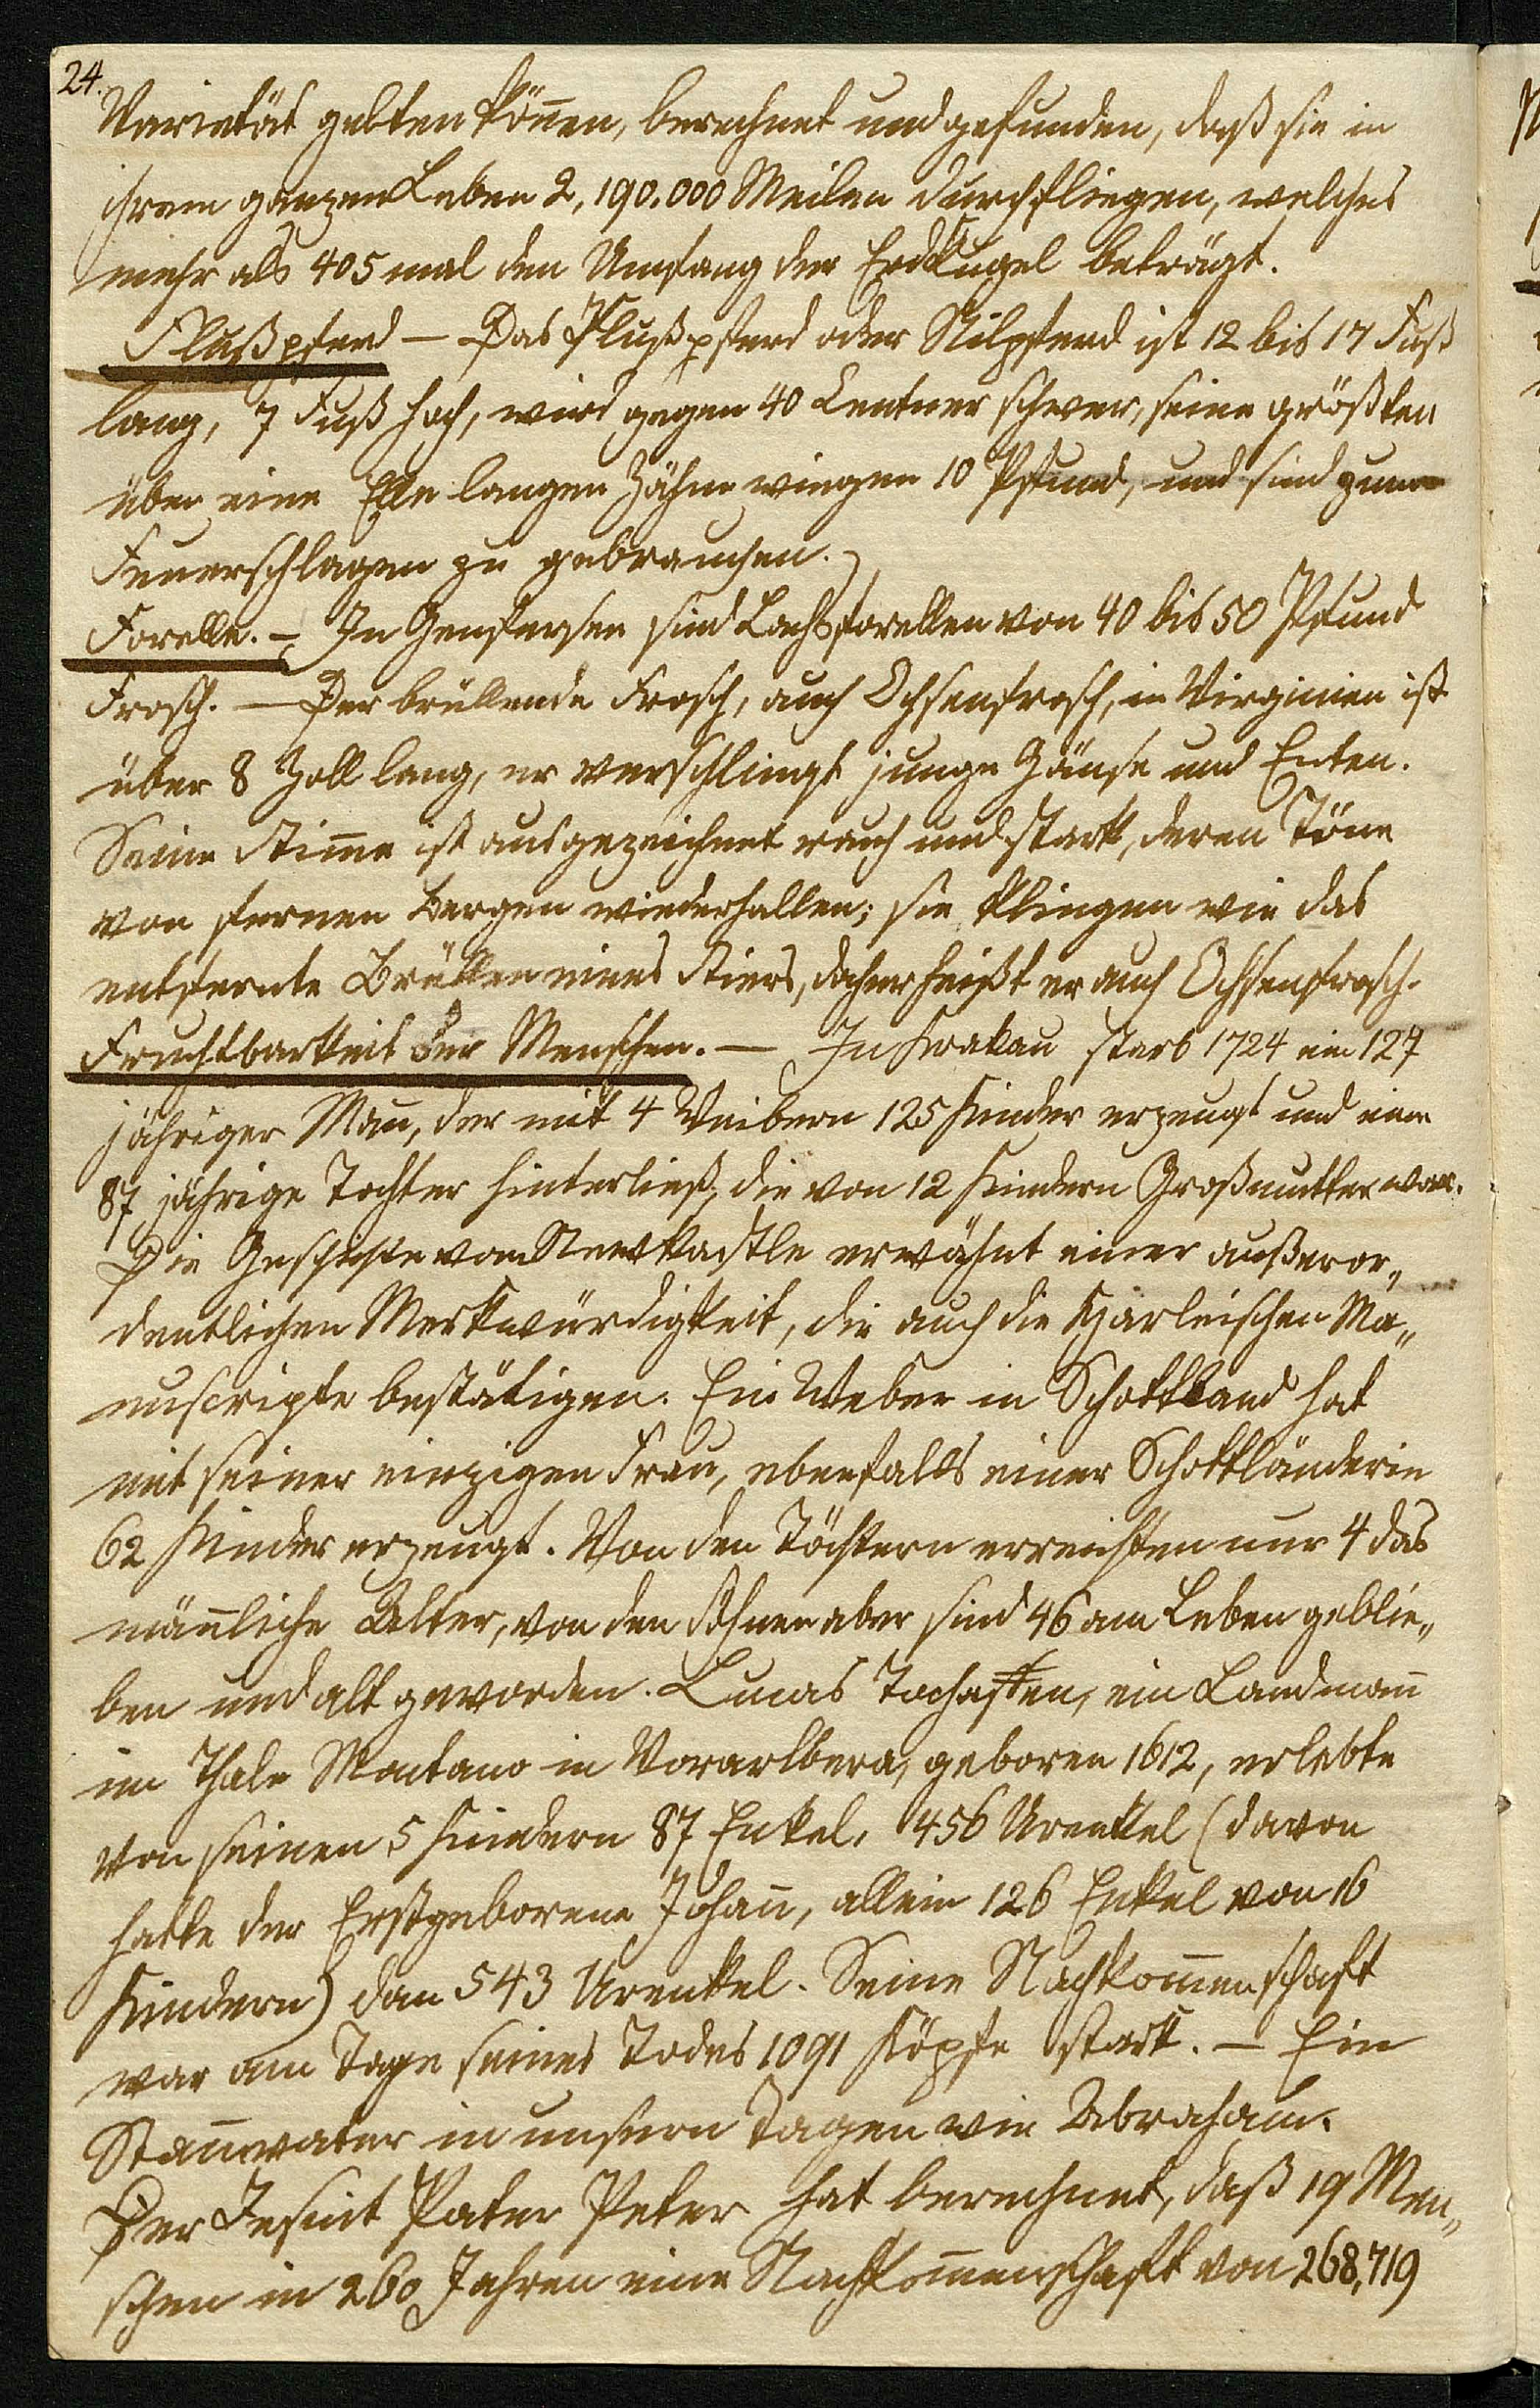 24.
Varietät gelten können, berechnet und gefunden, daß sie in
ihrem ganzen Leben 2,190.000 Meilen durchfliegen, welches
mehr als 405 mal den Umfang der Erdkugel beträgt.
Flußpferd — Das Flußpferd oder Nilpferd ist 12 bis 17 Fuß
lang, 7 Fuß hoch, wird gegen 40 Centner schwer, seine größten
über eine Elle langen Zähne wiegen 10 Pfund, und sind zum
Feuerschlagen zu gebrauchen.
Forelle. — In Genfersee sind Lachsforellen von 40 bis 50 Pfund
Frosch. — Der brüllende Frosch, auch Ochsenfrosch, in Virginien ist
über 8 Zoll lang, er verschlingt junge Gänse und Enten.
Seine Stim̅e ist ausgezeichnet rauh und stark, deren Töne
von fernen Bergen wiederhallen; sie klingen wie das
entfernte Brüllen eines Stiers, daher heißt er auch Ochsenfrosch.
Fruchtbarkeit der Menschen. — In Krakau starb 1724 ein 127
jähriger Man̅, der mit 4 Weibern 125 Kinder erzeugt und eine
87 jährige Tochter hinterließ, die von 12 Kindern Großmutter war.
Die Geschichte von Newkastle erwähnt einer außeror„
dentlichen Merkwürdigkeit, die auch die Harleischen Ma„
nuscripte bestätigen. Ein Weber in Schottland hat
mit seiner einzigen Frau, ebenfalls einer Schottländerin
62 Kinder erzeugt. Von den Töchtern erreichten nur 4 das
män̅liche Alter, von den Söhnen aber sind 46 am Leben geblie„
ben und alt geworden. Lucas Tochasten, ein Landman̅
im Thale Montano in Vorarlberg, geboren 1612, erlebte
von seinen 5 Kindern 87 Enkel, 456 Urenkel (davon
hatte der Erstgeborene Johan̅, allein 126 Enkel von 16
Kindern) dan 543 Urenkel. Seine Nachkom̅enschaft
war am Tage seines Todes 1091 Köpfe stark. — Ein
Stam̅vater in unsern Tagen wie Abraham.
Der Jesuit Pater Peter hat berechnet, daß 19 Men„
schen in 260 Jahren eine Nachkom̅enschaft von 268,719